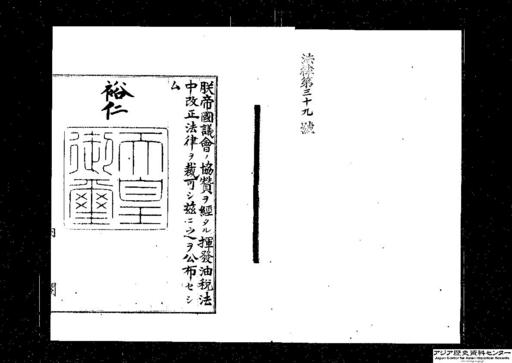 法律第三十九號
朕帝國議會ノ協贊ヲ經タル揮發油税法
中改正法律ヲ裁可シ茲ニ之ヲ公布セシ
ム
裕仁
天皇
御璽
アジア歴史資料センター
Japan Center for Asian Historical Records